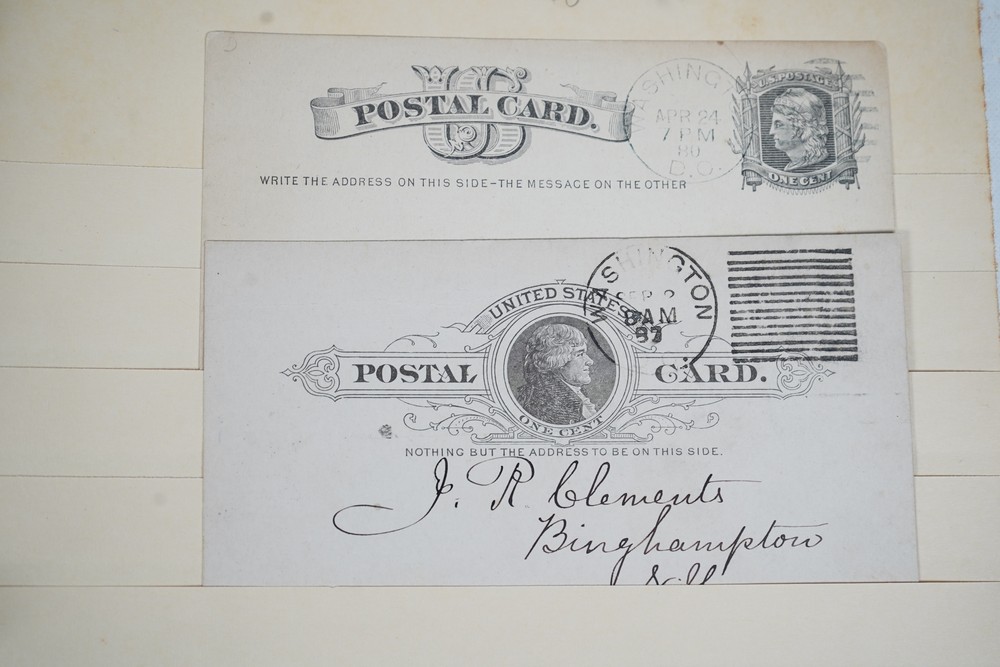 US
POSTAL CARD.
WRITE THE ADDRESS ON THIS SIDE-THE MESSAGE ON THE OTHER
WASHINGT
APR 24
7 PM
80
D.C.
U.S. POSTAGE
ONE CENT
UNITED STATES
POSTAL CARD.
ONE CENT
WASHINGTON
SEP 2
8 AM
87
NOTHING BUT THE ADDRESS TO BE ON THIS SIDE.
J. R Clements
Binghampton
N.Y.